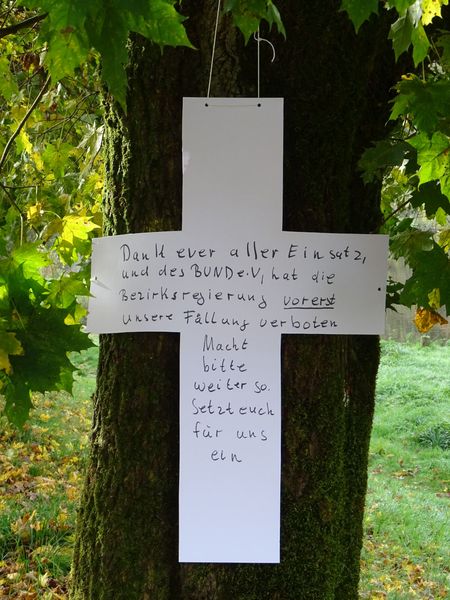 Dank euer aller Einsatz,
und des BUND e.V, hat die
Bezirksregierung vorerst
unsere Fällung verboten
Macht
bitte
weiter so.
Setzt euch
für uns
ein